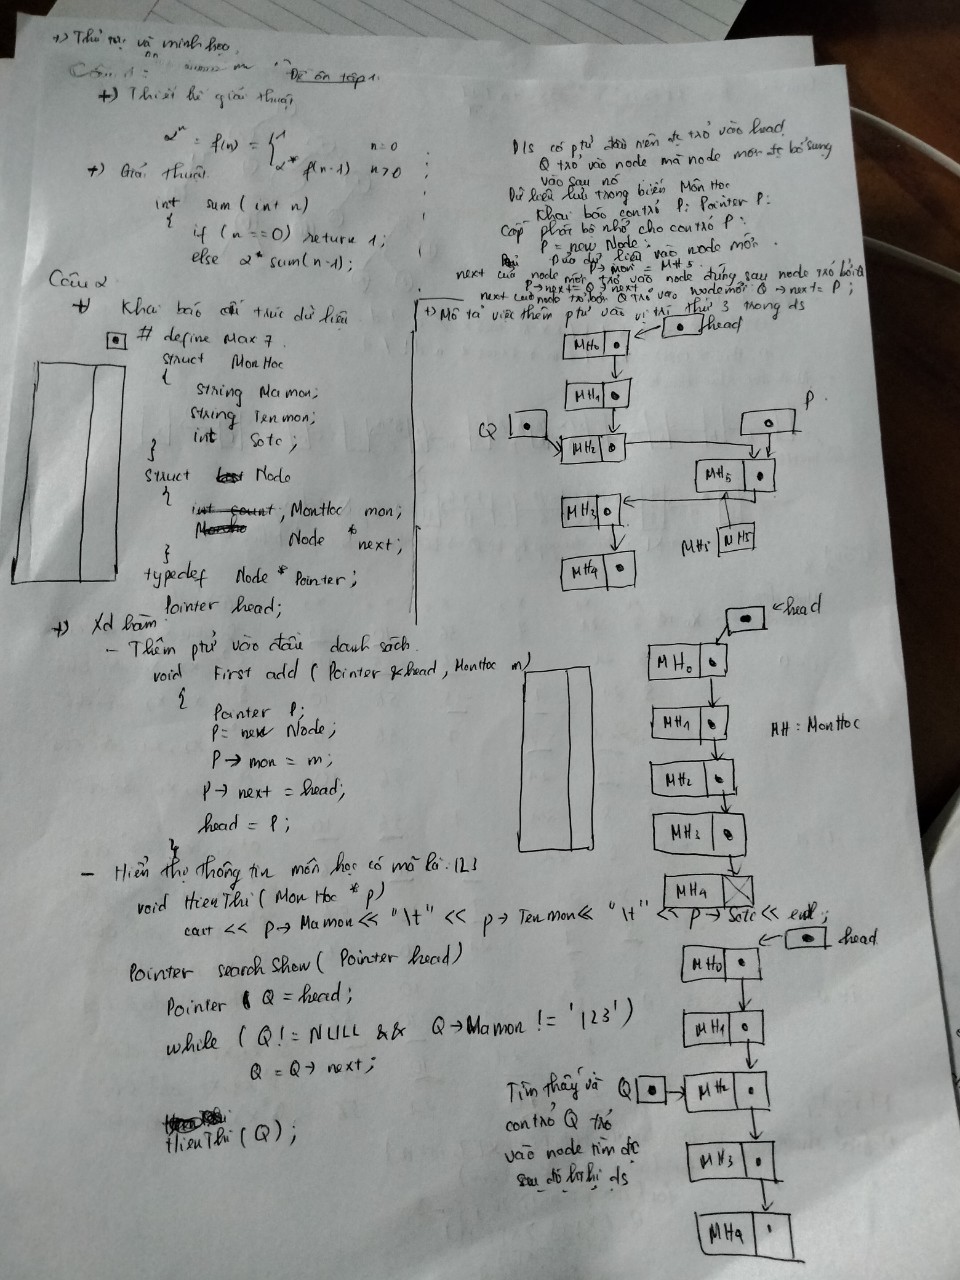 +) Thủ tục và minh họa
Đề ôn tập 1.
+) Thiết kế giải thuật
2ⁿ = f(n) = { 1 n=0
2* f(n-1) n>0
+) Giải thuật
int sum(int n)
{
if (n==0) return 1;
else 2* sum(n-1);
Câu 2
+) Khai báo cấu trúc dữ liệu
# define Max 7.
struct MonHoc
{
string Mamon;
string Tenmon;
int Sotc;
}
struct Node
{
MonHoc mon;
Node *next;
}
typedef Node * Pointer;
Pointer head;
+) Xd hàm:
- Thêm ptử vào đầu danh sách.
void First add (Pointer &head, MonHoc m)
{
Pointer P;
P = new Node;
P → mon = m;
P → next = head;
head = P;
}
- Hiển thị thông tin môn học có mã là: 123
void HienThi (Mon Hoc * p)
cout << p→ Mamon << "\t" << p→ Tenmon << "\t" << p→ Sotc << endl;
Pointer search Show (Pointer head)
Pointer Q = head;
while (Q != NULL && Q→Mamon != '123')
Q = Q→ next;
HienThi (Q);
D/s có ptử đầu tiên đc trỏ vào head
Q trỏ vào node mà node mới đc bổ sung
vào sau nó
Dữ liệu lưu trong biến Môn Hoc
Khai báo con trỏ P: Pointer P;
Cấp phát bộ nhớ cho con trỏ P:
P = new Node;
dữ liệu vào node mới.
P→ mon = MH5
next của node mới trỏ vào node đứng sau node trỏ bởi Q
P→next = Q→next
next của node trỏ bởi Q trỏ vào node mới Q→next = P;
+) Mô tả việc thêm ptử vào vị trí thứ 3 trong ds
head
MH0
MH1
P
Q
MH2
MH5
MH3
MH5
MH5
MH4
head
MH0
MH1
MH : MonHoc
MH2
MH3
MH4
head
MH0
MH1
Tìm thấy và
con trỏ Q trỏ
vào node tìm đc
Q
MH2
MH3
MH4